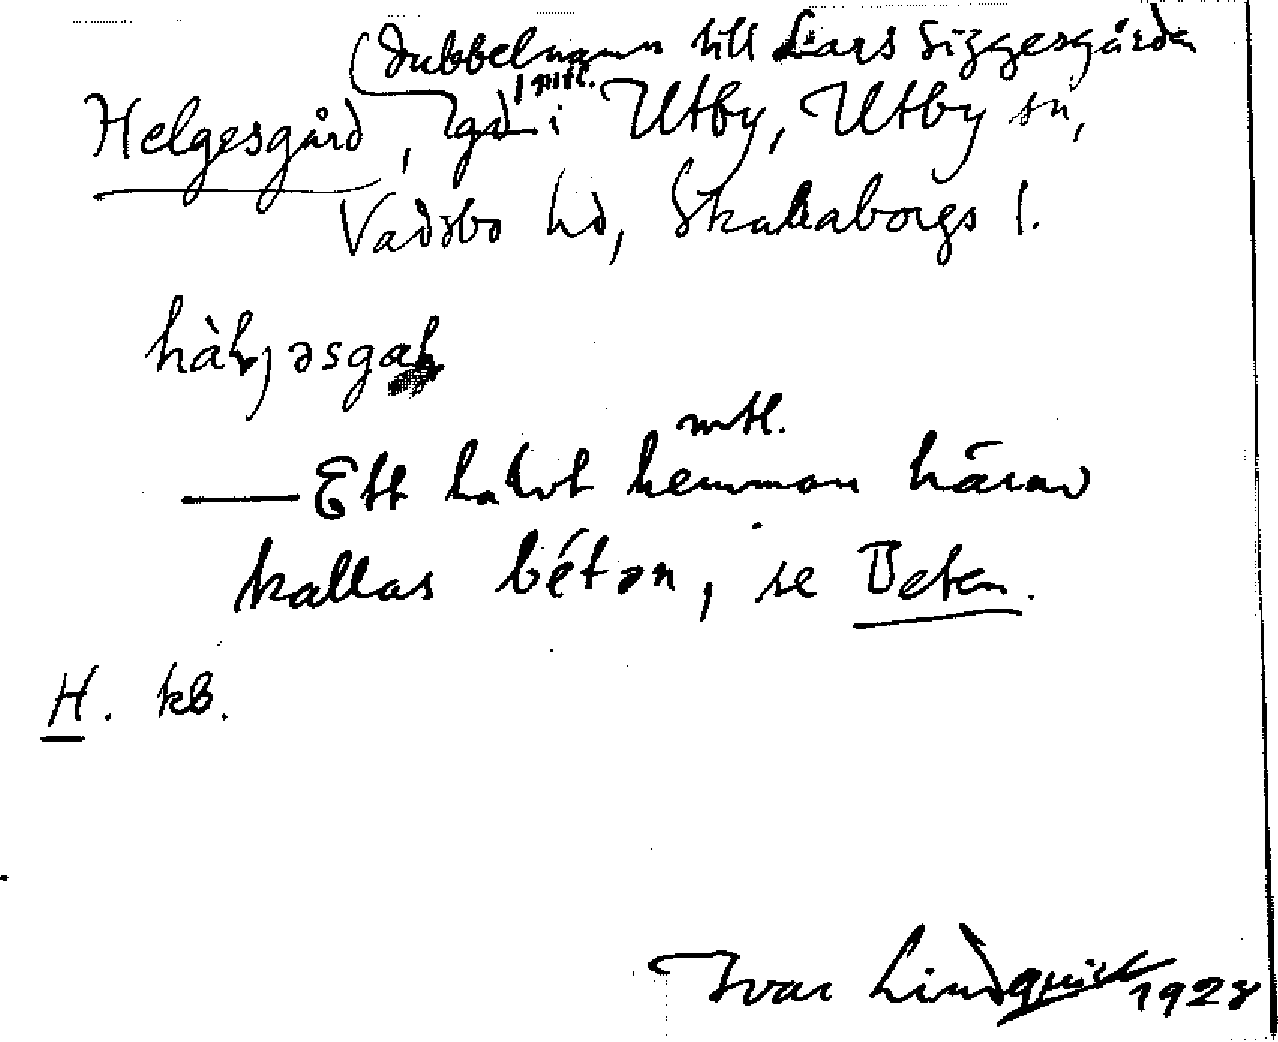 (dubbelnamn till Lars Siggesgården
1 mtl.
Helgesgård, gd i Utby, Utby sn,
Vadsbo hd, Skaraborgs l.
hàlj əsgal
mtl.
— Ett halvt hemman härav
kallas bétən, se Beten.
H. kb.
Ivar Lindquist 1928